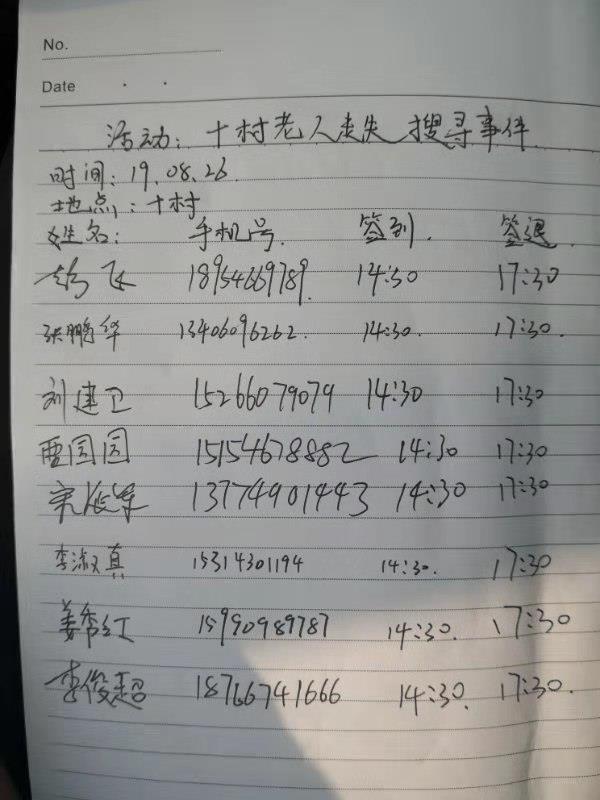 No.
Date
活动: 十村老人走失 搜寻事件
时间: 19.08.26
地点: 十村
姓名: 手机号. 签到. 签退.
飞 18954669789. 14:30 17:30
张鹏华 13406096262. 14:30. 17:30.
刘建卫 15266079079 14:30 17:30
贾园园 15154678882 14:30 17:30
13774901443 14:30 17:30
李淑真 15314301194 14:30. 17:30
姜秀红 15990989787 14:30. 17:30
李俊超 18766741666 14:30. 17:30.